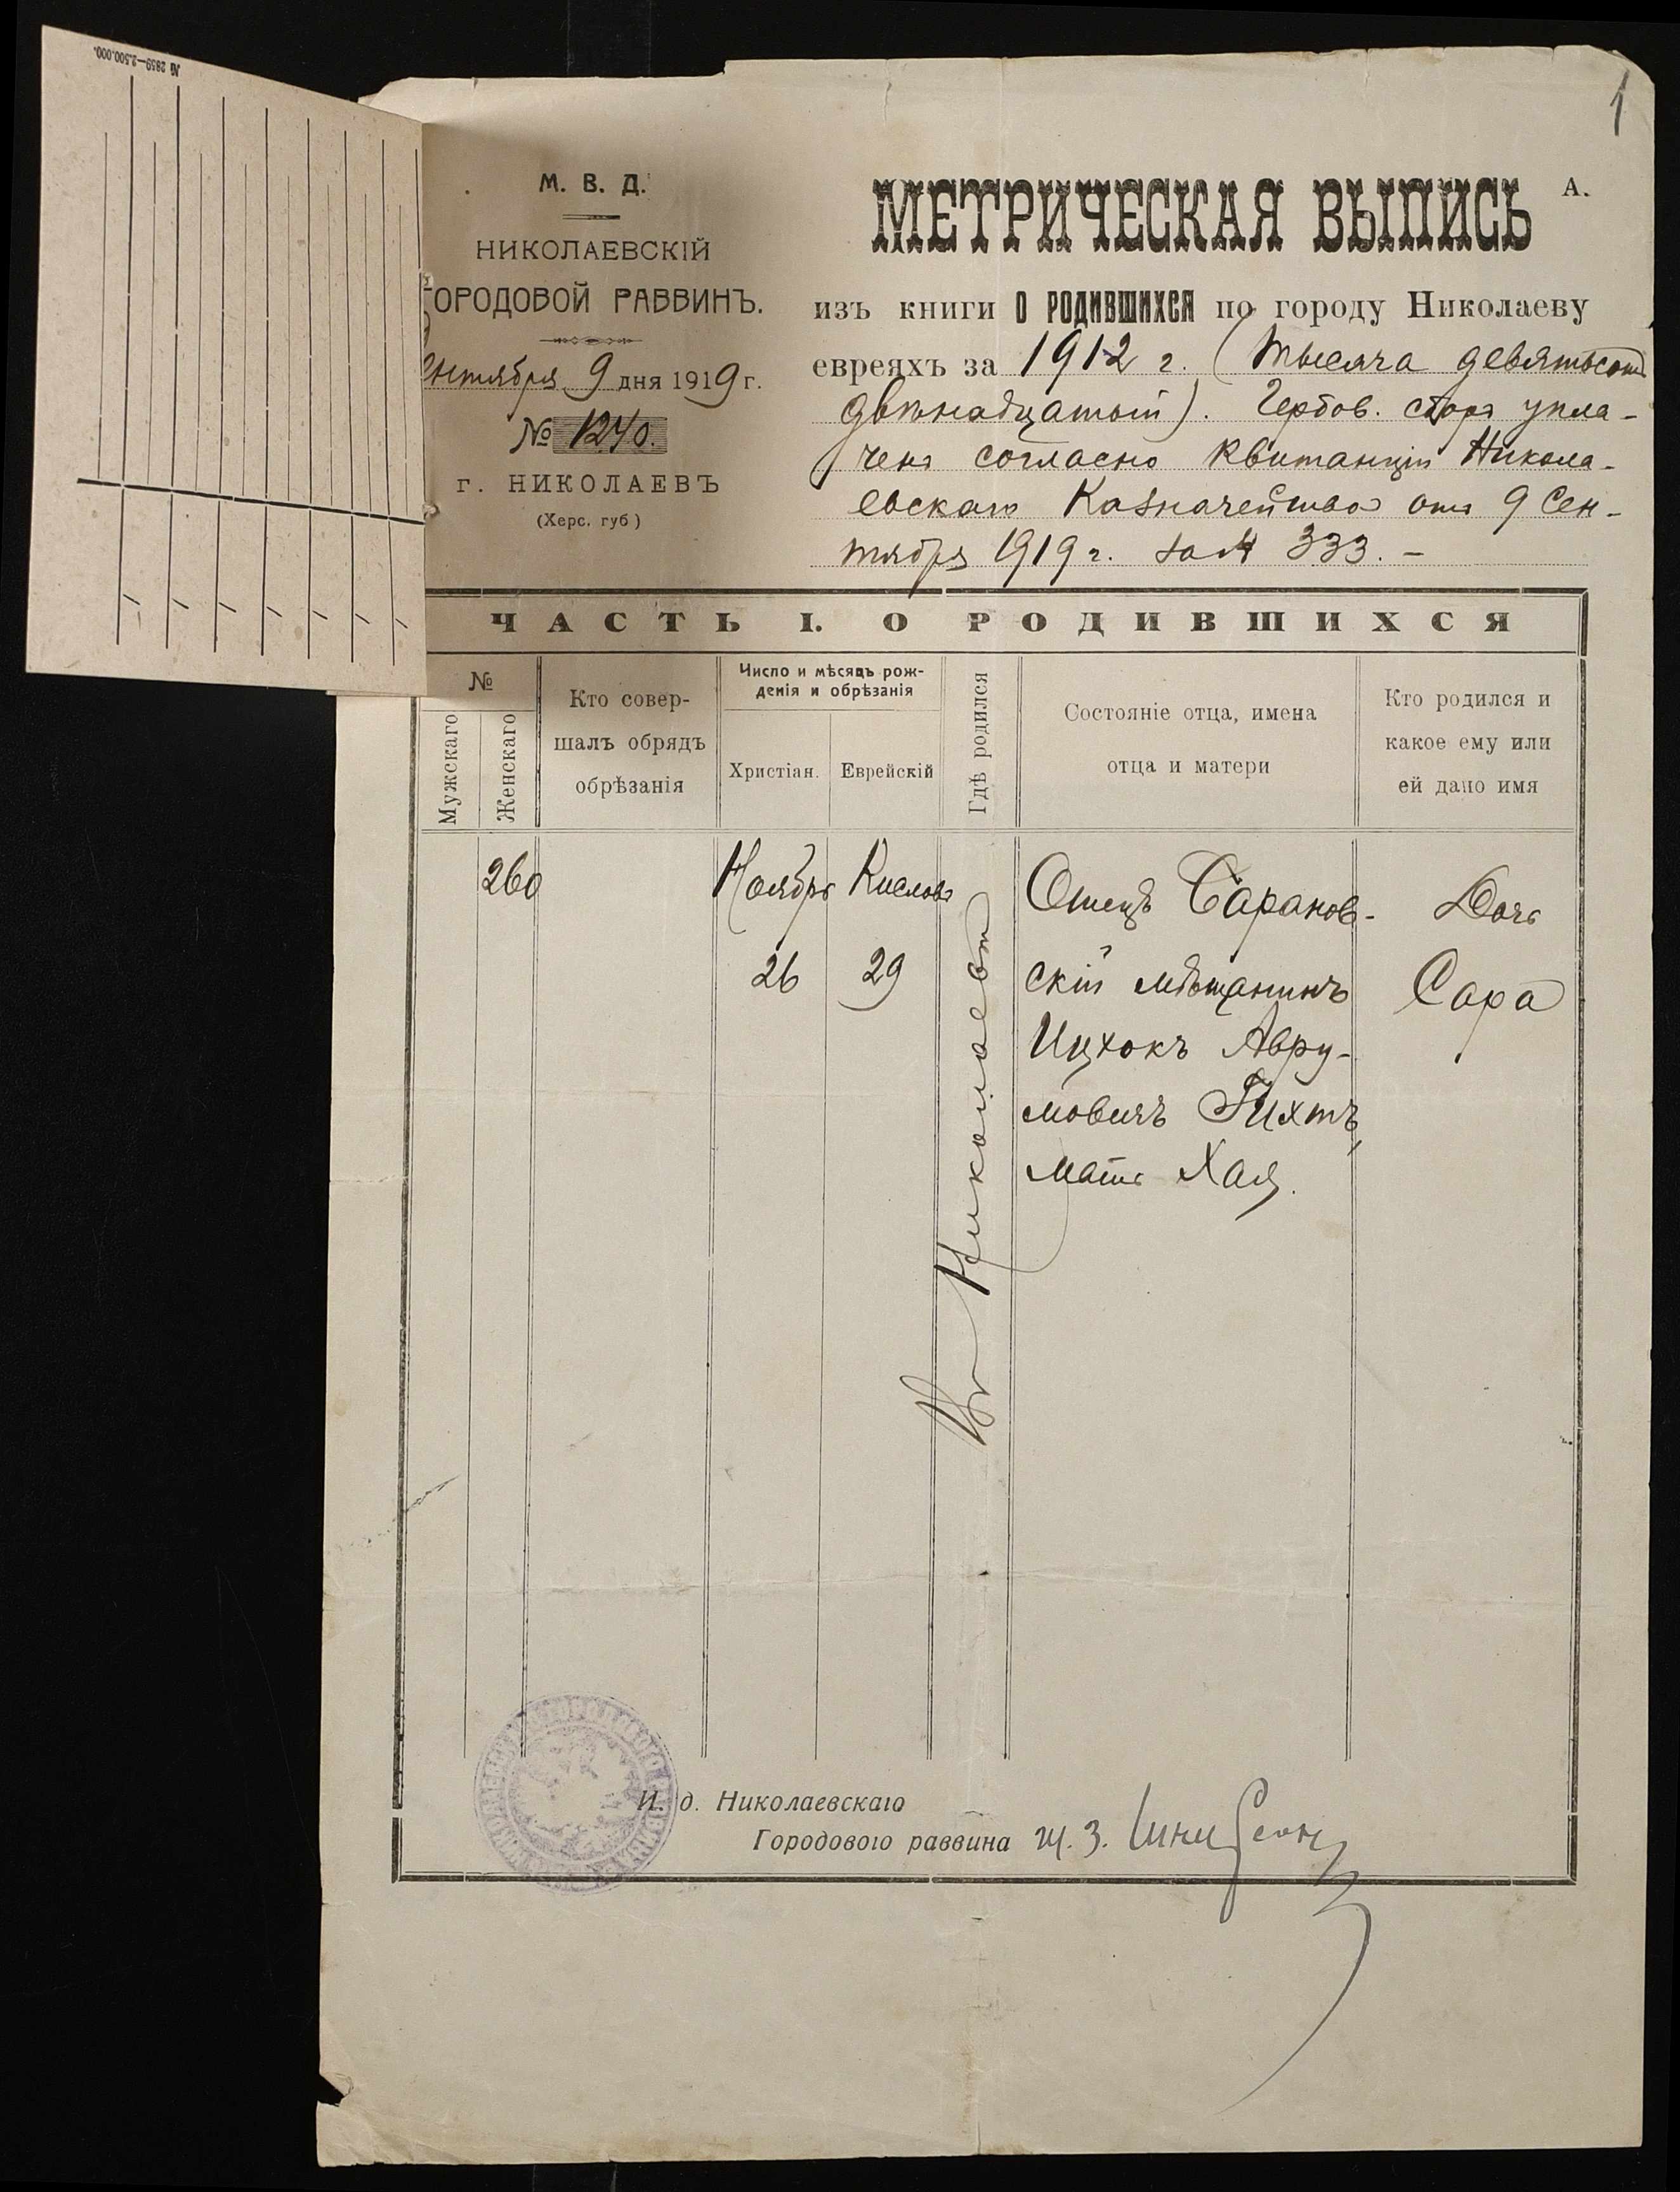 № 2859—2.500.000.
1
М. В. Д.
НИКОЛАЕВСКІЙ
ГОРОДОВОЙ РАВВИНЪ.
ентября 9 дня 1919 г.
№ 1240.
г. НИКОЛАЕВЪ
(Херс. губ)
МЕТРИЧЕСКАЯ ВЫПИСЬ
А.
изъ книги О РОДИВШИХСЯ по городу Николаеву
евреяхъ за 1912 г. (тысяча девятьсотъ
двѣнадцатый). Гербов. сборъ упла-
ченъ согласно квитанціи Никола-
евскаго Казначейства отъ 9 Сен-
тября 1919 г. за № 333. —
ЧАСТЬ I. О РОДИВШИХСЯ
№
Мужскаго
Женскаго
Кто совер-
шалъ обрядъ
обрѣзанія
Число и мѣсяцъ рож-
денія и обрѣзанія
Христіан.
Еврейскій
Гдѣ родился
Состояніе отца, имена
отца и матери
Кто родился и
какое ему или
ей дано имя
260
Ноябрь
26
Кислевъ
29
Въ Николаевѣ
Отецъ Таранов-
скій мѣщанинъ
Ицхокъ Авру-
мовичъ Гихтъ,
мать Хая.
Дочь
Сара
И. д. Николаевскаго
Городового раввина Ш. З.